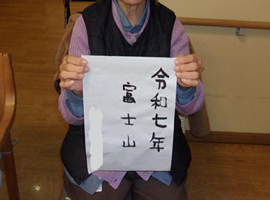 令和七年
富士山